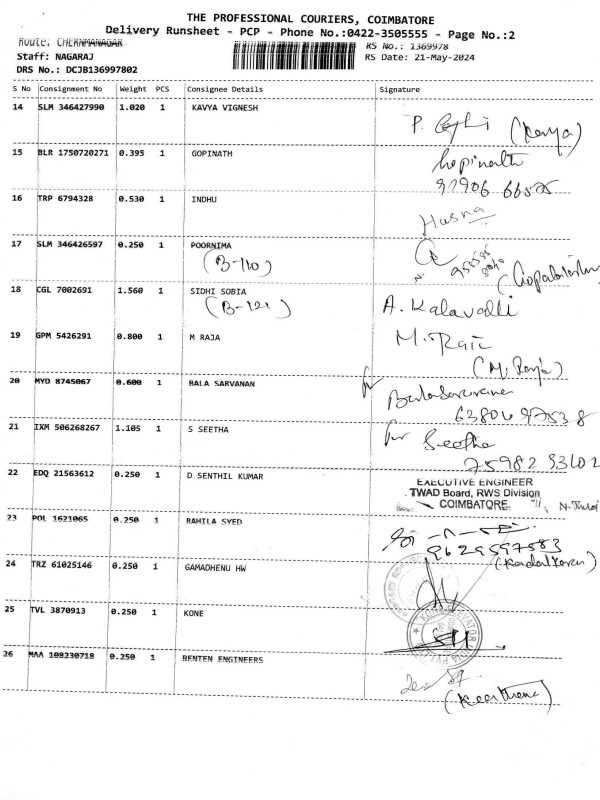 THE PROFESSIONAL COURIERS, COIMBATORE
Delivery Runsheet - PCP - Phone No.:0422-3505555 - Page No.:2
Route: CHERNMANAGAR RS No.: 1369978
Staff: NAGARAJ RS Date: 21-May-2024
DRS No.: DCJB136997802
S No Consignment No Weight PCS Consignee Details Signature
14 SLM 346427990 1.020 1 KAVYA VIGNESH
(Kavya)
15 BLR 1750720271 0.395 1 GOPINATH
Gopinath
16 TRP 6794328 0.530 1 INDHU
Husna
17 SLM 346426597 0.250 1 POORNIMA
(B-110)
18 CGL 7002691 1.560 1 SIDHI SOBIA
(B-121) A. Kalavalli
19 GPM 5426291 0.800 1 M RAJA
M. Raja
(M. Raja)
20 MYD 8745067 0.600 1 BALA SARVANAN
for
21 IXM 506268267 1.105 1 S SEETHA
for Seetha
22 EDQ 21563612 0.250 1 D SENTHIL KUMAR
EXECUTIVE ENGINEER
TWAD Board, RWS Division
COIMBATORE
23 POL 1621065 0.250 1 RAHILA SYED
9629597583
24 TRZ 61025146 0.250 1 GAMADHENU HW
25 TVL 3870913 0.250 1 KONE
26 MAA 108230718 0.250 1 BENTEN ENGINEERS
(Keerthana)